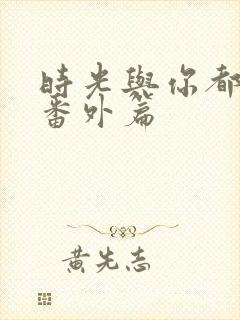 時光與你都
番外篇
黄先志